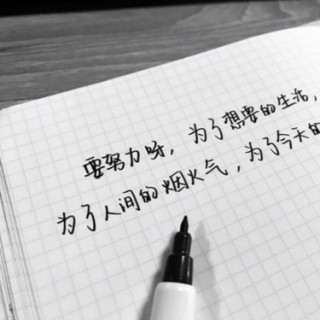 要努力呀，为了想要的生活，
为了人间的烟火气，为了今天的